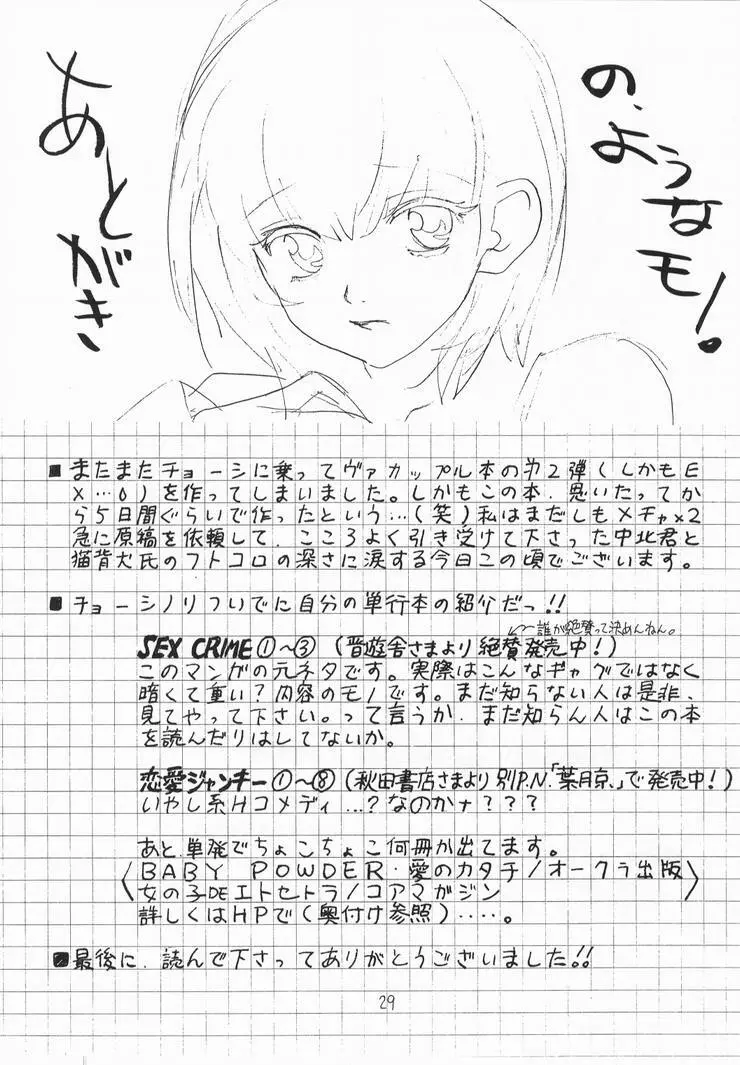 あとがき
の、ようなモノ。
■またまたチョーシに乗ってヴァカップル本の第2弾(しかもE
X…0)を作ってしまいました。しかもこの本、思いたってか
ら5日間ぐらいで作ったという…(笑)私はまだしもメチャx2
急に原稿を依頼して、こころよく引き受けて下さった中北君と
猫背犬氏のフトコロの深さに涙する今日この頃でございます。
■チョーシノリついでに自分の単行本の紹介だっ!!
誰が絶賛って決めんねん。
SEX CRIME①〜③(晋遊舎さまより絶賛発売中!)
このマンガの元ネタです。実際はこんなギャグではなく
暗くて重い?内容のモノです。まだ知らない人は是非、
見てやって下さい。って言うか、まだ知らん人はこの本
を読んだりはしてないか。
恋愛ジャンキー①〜⑧(秋田書店さまより別P.N.「葉月京」で発売中!)
いやし系Hコメディ…?なのかナ???
あと、単発でちょこちょこ何冊か出てます。
BABY POWDER・愛のカタチ/オークラ出版
女の子DEエトセトラ/コアマガジン
詳しくはHPで(奥付け参照)‥‥。
■最後に、読んで下さってありがとうございました!!
29